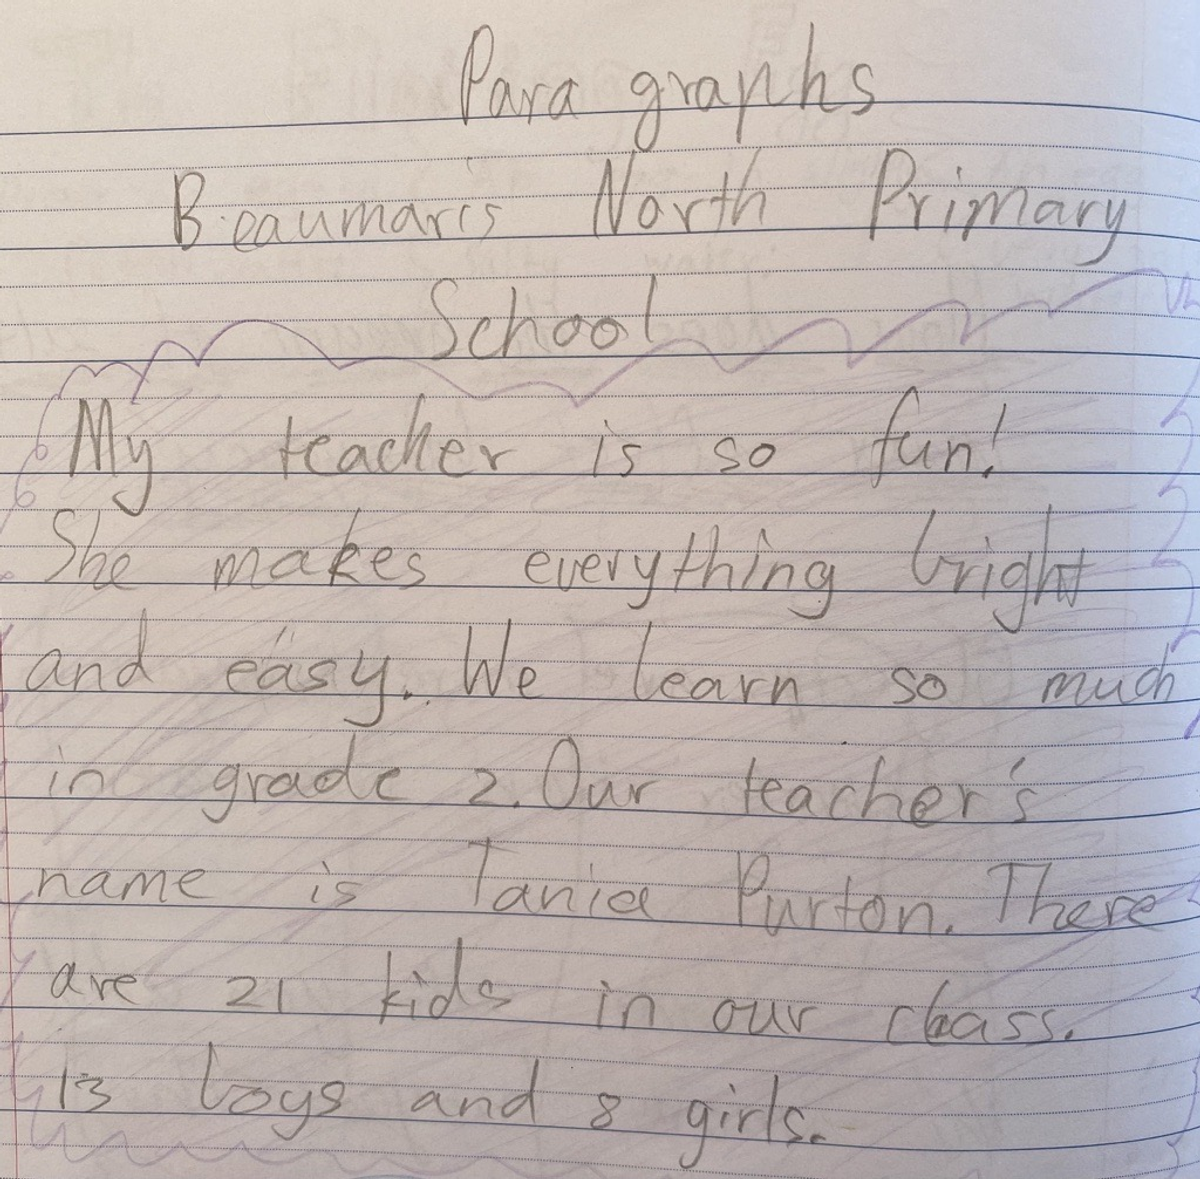 Para graphs
Beaumaris North Primary
School
My teacher is so fun!
She makes everything bright
and easy. We learn so much
in grade 2. Our teacher's
name is Tania Purton. There
are 21 kids in our class.
13 boys and 8 girls.